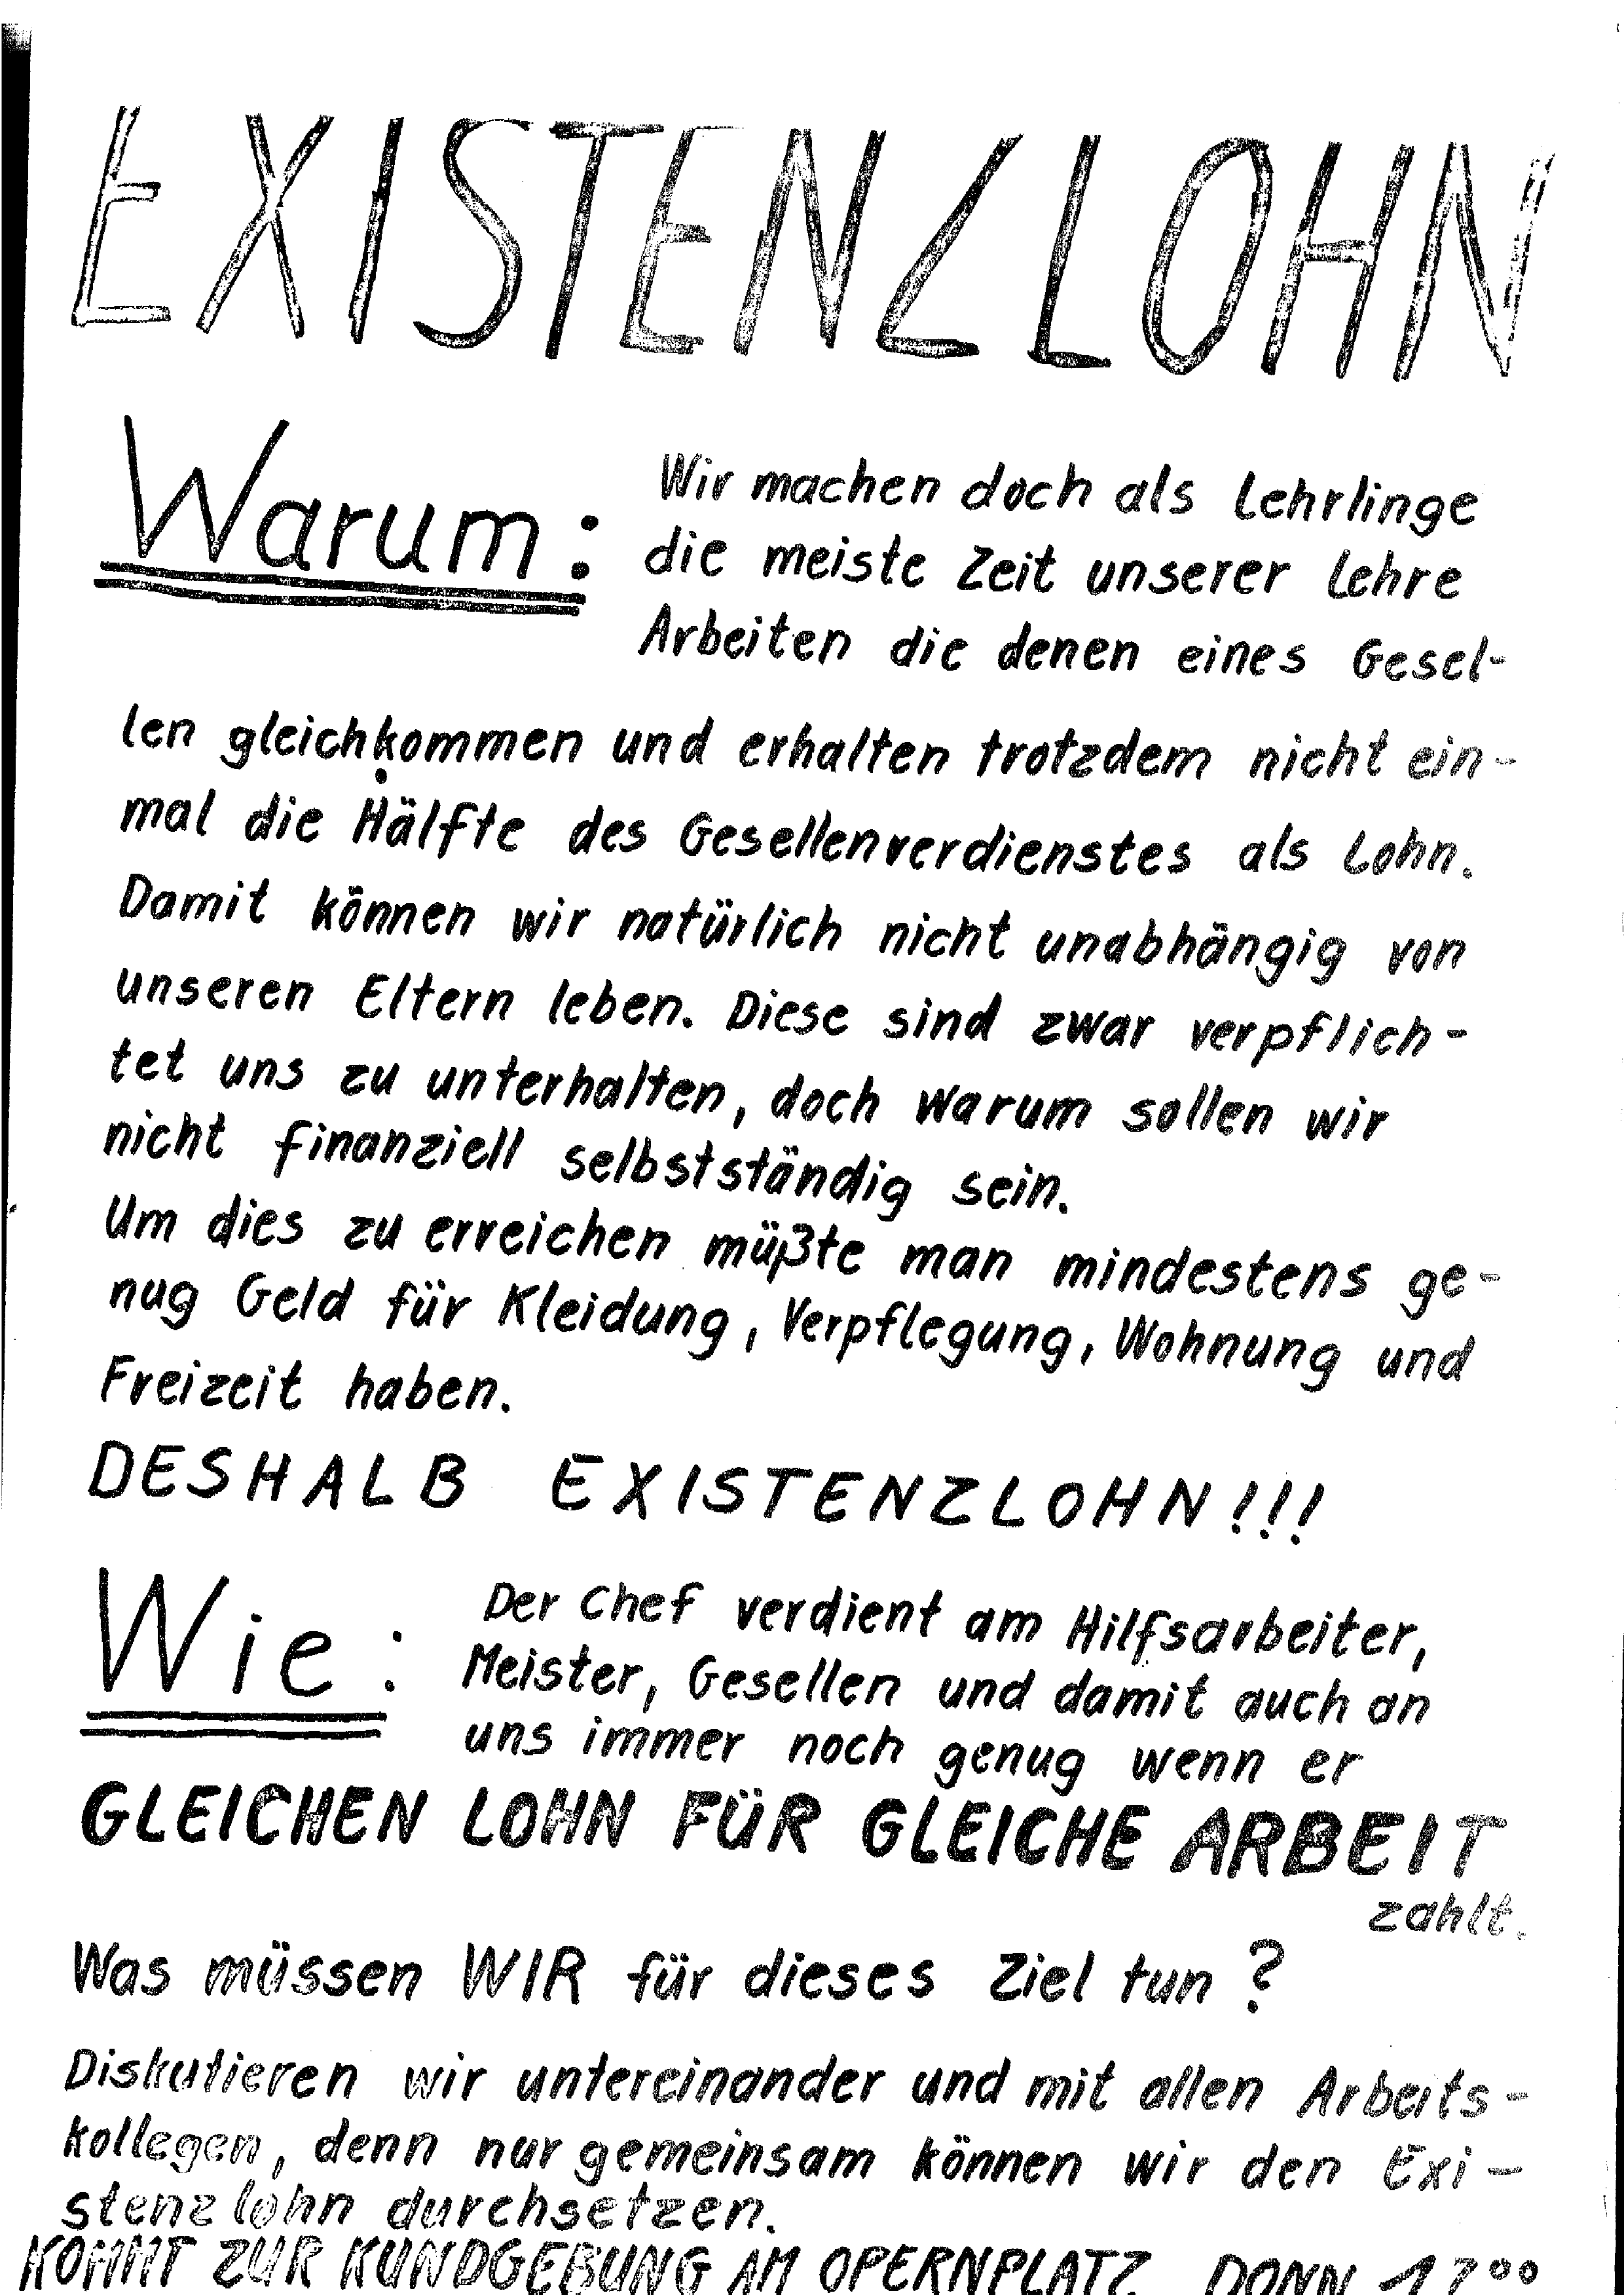 EXISTENZLOHN
Warum:
Wir machen doch als Lehrlinge
die meiste Zeit unserer Lehre
Arbeiten die denen eines Gesel-
len gleichkommen und erhalten trotzdem nicht ein-
mal die Hälfte des Gesellenverdienstes als Lohn.
Damit können wir natürlich nicht unabhängig von
unseren Eltern leben. Diese sind zwar verpflich-
tet uns zu unterhalten, doch warum sollen wir
nicht finanziell selbstständig sein.
Um dies zu erreichen müßte man mindestens ge-
nug Geld für Kleidung, Verpflegung, Wohnung und
Freizeit haben.
DESHALB EXISTENZLOHN!!!
Wie:
Der Chef verdient am Hilfsarbeiter,
Meister, Gesellen und damit auch an
uns immer noch genug wenn er
GLEICHEN LOHN FÜR GLEICHE ARBEIT
zahlt.
Was müssen WIR für dieses Ziel tun?
Diskutieren wir untereinander und mit allen Arbeits-
kollegen, denn nur gemeinsam können wir den Exi-
stenzlohn durchsetzen.
KOMMT ZUR KUNDGEBUNG AM OPERNPLATZ DONN